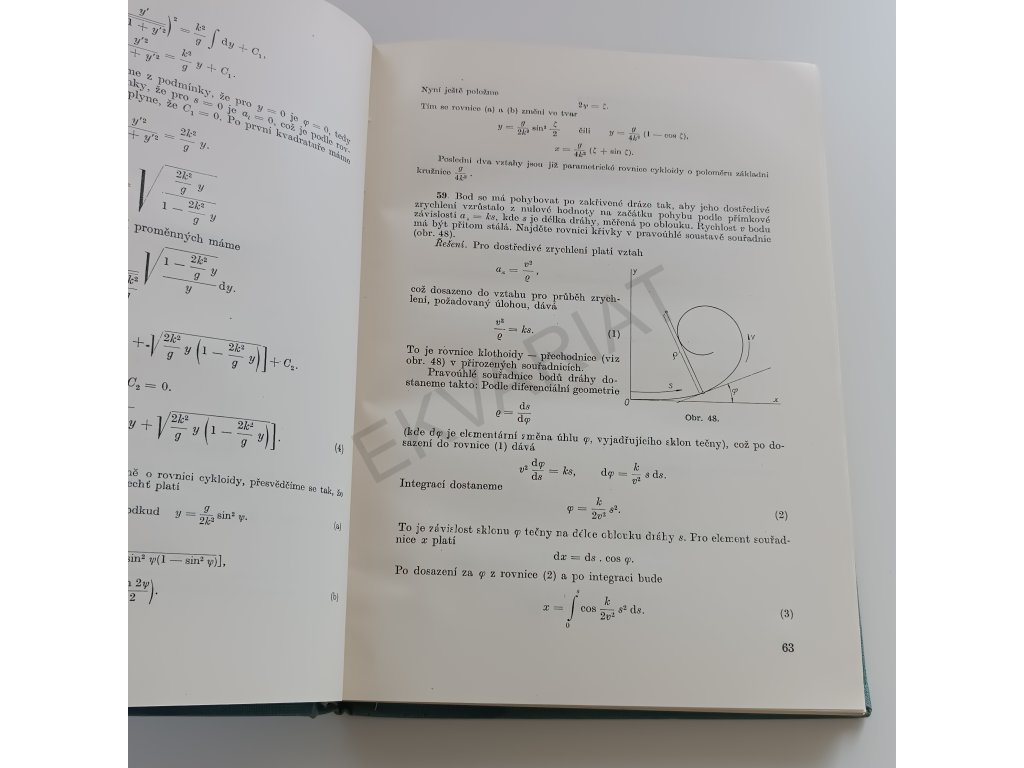 y'
1 + y'² )² = k²/g ∫ dy + C₁,
y'²
+ y'² = k²/g y + C₁.
me z podmínky, že pro y = 0 je φ = 0, tedy
nky, že pro s = 0 je aₜ = 0, což je podle rov-
plyne, že C₁ = 0. Po první kvadratuře máme
y'²
+ y'² = 2k²/g y.
√( (2k²/g y) / (1 − 2k²/g y) )
proměnných máme
√( (1 − 2k²/g y) / y ) dy.
+ √( 2k²/g y (1 − 2k²/g y) ) ] + C₂.
C₂ = 0.
y + √( 2k²/g y (1 − 2k²/g y) ) ]. (4)
ně o rovnici cykloidy, přesvědčíme se tak, že
echť platí
odkud y = g/2k² sin² ψ. (a)
sin² ψ(1 − sin² ψ)],
2ψ/2 ). (b)
Nyní ještě položme
2ψ = ζ.
Tím se rovnice (a) a (b) změní ve tvar
y = g/2k² sin² ζ/2 čili y = g/4k² (1 − cos ζ),
x = g/4k² (ζ + sin ζ).
Poslední dva vztahy jsou již parametrické rovnice cykloidy o poloměru základní
kružnice g/4k².
59. Bod se má pohybovat po zakřivené dráze tak, aby jeho dostředivé
zrychlení vzrůstalo z nulové hodnoty na začátku pohybu podle přímkové
závislosti aₙ = ks, kde s je délka dráhy, měřená po oblouku. Rychlost v bodu
má být přitom stálá. Najděte rovnici křivky v pravoúhlé soustavě souřadnic
(obr. 48).
Řešení. Pro dostředivé zrychlení platí vztah
aₙ = v²/ϱ ,
což dosazeno do vztahu pro průběh zrych-
lení, požadovaný úlohou, dává
v²/ϱ = ks. (1)
To je rovnice klothoidy — přechodnice (viz
obr. 48) v přirozených souřadnicích.
Pravoúhlé souřadnice bodů dráhy do-
staneme takto: Podle diferenciální geometrie
ϱ = ds/dφ
y
ρ
v
s
φ
0
x
Obr. 48.
(kde dφ je elementární změna úhlu φ, vyjadřujícího sklon tečny), což po do-
sazení do rovnice (1) dává
v² dφ/ds = ks, dφ = k/v² s ds.
Integrací dostaneme
φ = k/2v² s². (2)
To je závislost sklonu φ tečny na délce oblouku dráhy s. Pro element souřad-
nice x platí
dx = ds . cos φ.
Po dosazení za φ z rovnice (2) a po integraci bude
x = ∫₀ˢ cos k/2v² s² ds. (3)
63
EKVARIAT